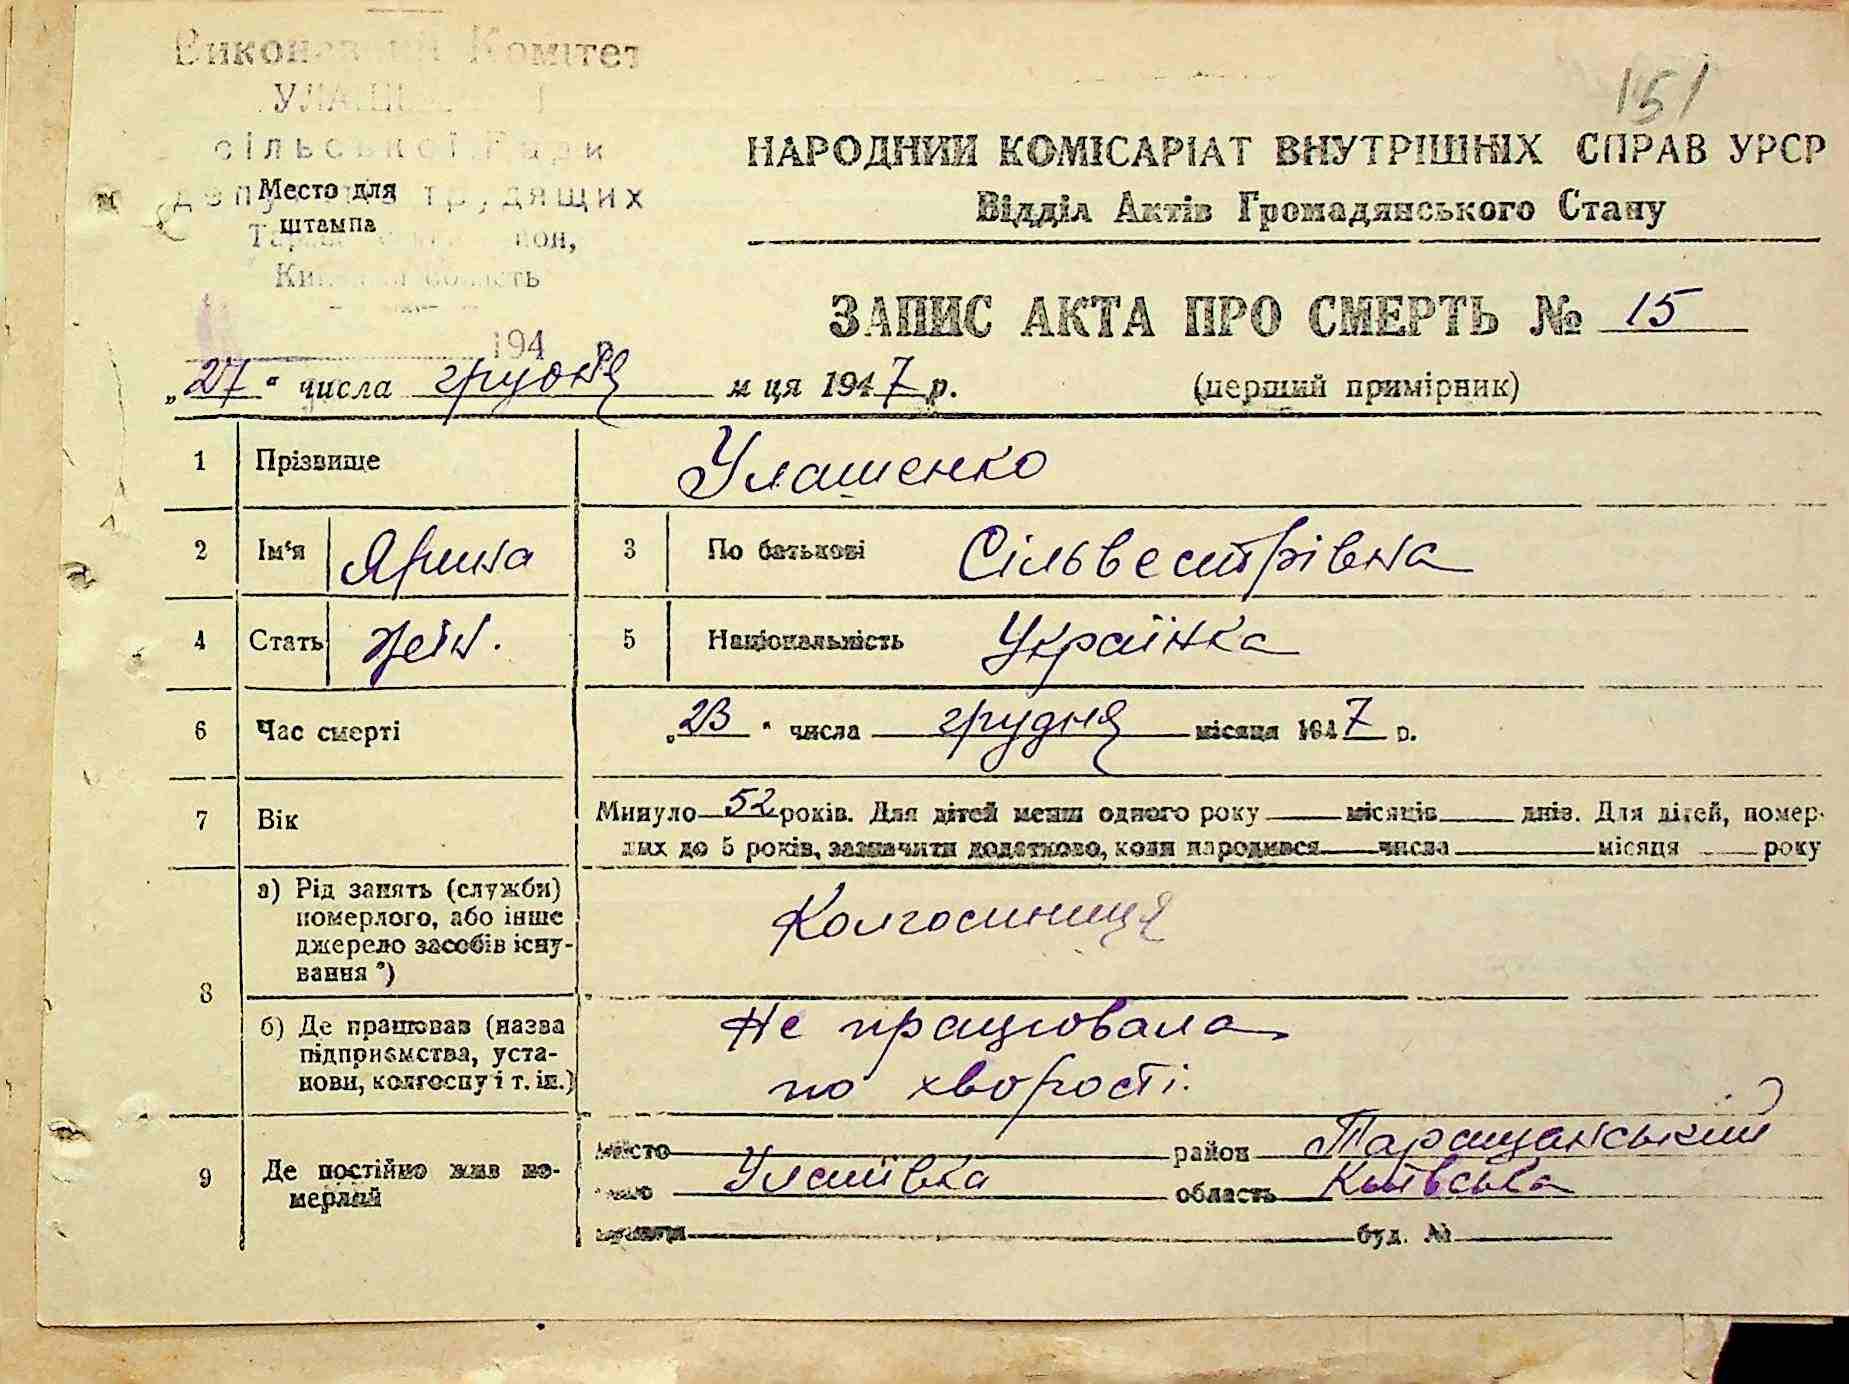 151
Виконавчий Комітет
сільської Ради
депутатів трудящих
Место для
штампа
Київська область
194 р.
НАРОДНИЙ КОМІСАРІАТ ВНУТРІШНІХ СПРАВ УРСР
Відділ Актів Громадянського Стану
ЗАПИС АКТА ПРО СМЕРТЬ № 15
„27“ числа грудня м ця 1947 р. (перший примірник)
1 Прізвище Улашенко
2 Ім'я Ярина 3 По батькові Сільвестрівна
4 Стать жін. 5 Національність Українка
6 Час смерті „23“ числа грудня місяця 1947 р.
7 Вік Минуло 52 років. Для дітей менш одного року місяців днів. Для дітей, помер-
лих до 5 років, зазначити додатково, коли народився числа місяця року
8 а) Рід занять (служби)
померлого, або інше
джерело засобів існу-
вання *)
Колгоспниця
б) Де працював (назва
підприємства, уста-
нови, колгоспу і т. ін.)
Не працювала
по хворості.
9 Де постійно жив по-
мерлий
місто район Таращанський
Улашівка область Київська
буд. №